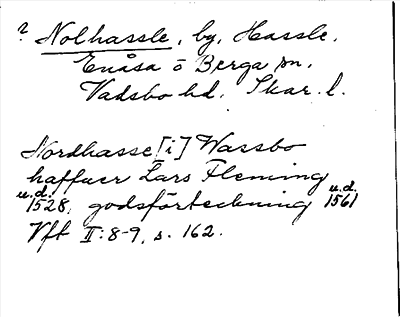 ? Nolhassle, by, Hassle,
Enåsa o Berga sn.
Vadsbo hd. Skar. l.
Nordhasse [i] Wassbo
haffuer Lars Fleming
u.d. 1528, godsförteckning u.d. 1561
Vft II:8-9, s. 162.